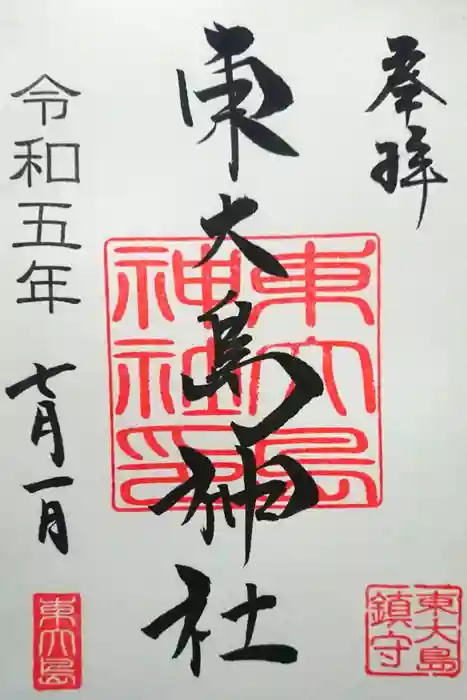 奉拝
東大島神社
令和五年
七月一日
東大島神社印
東大島鎮守
東大島